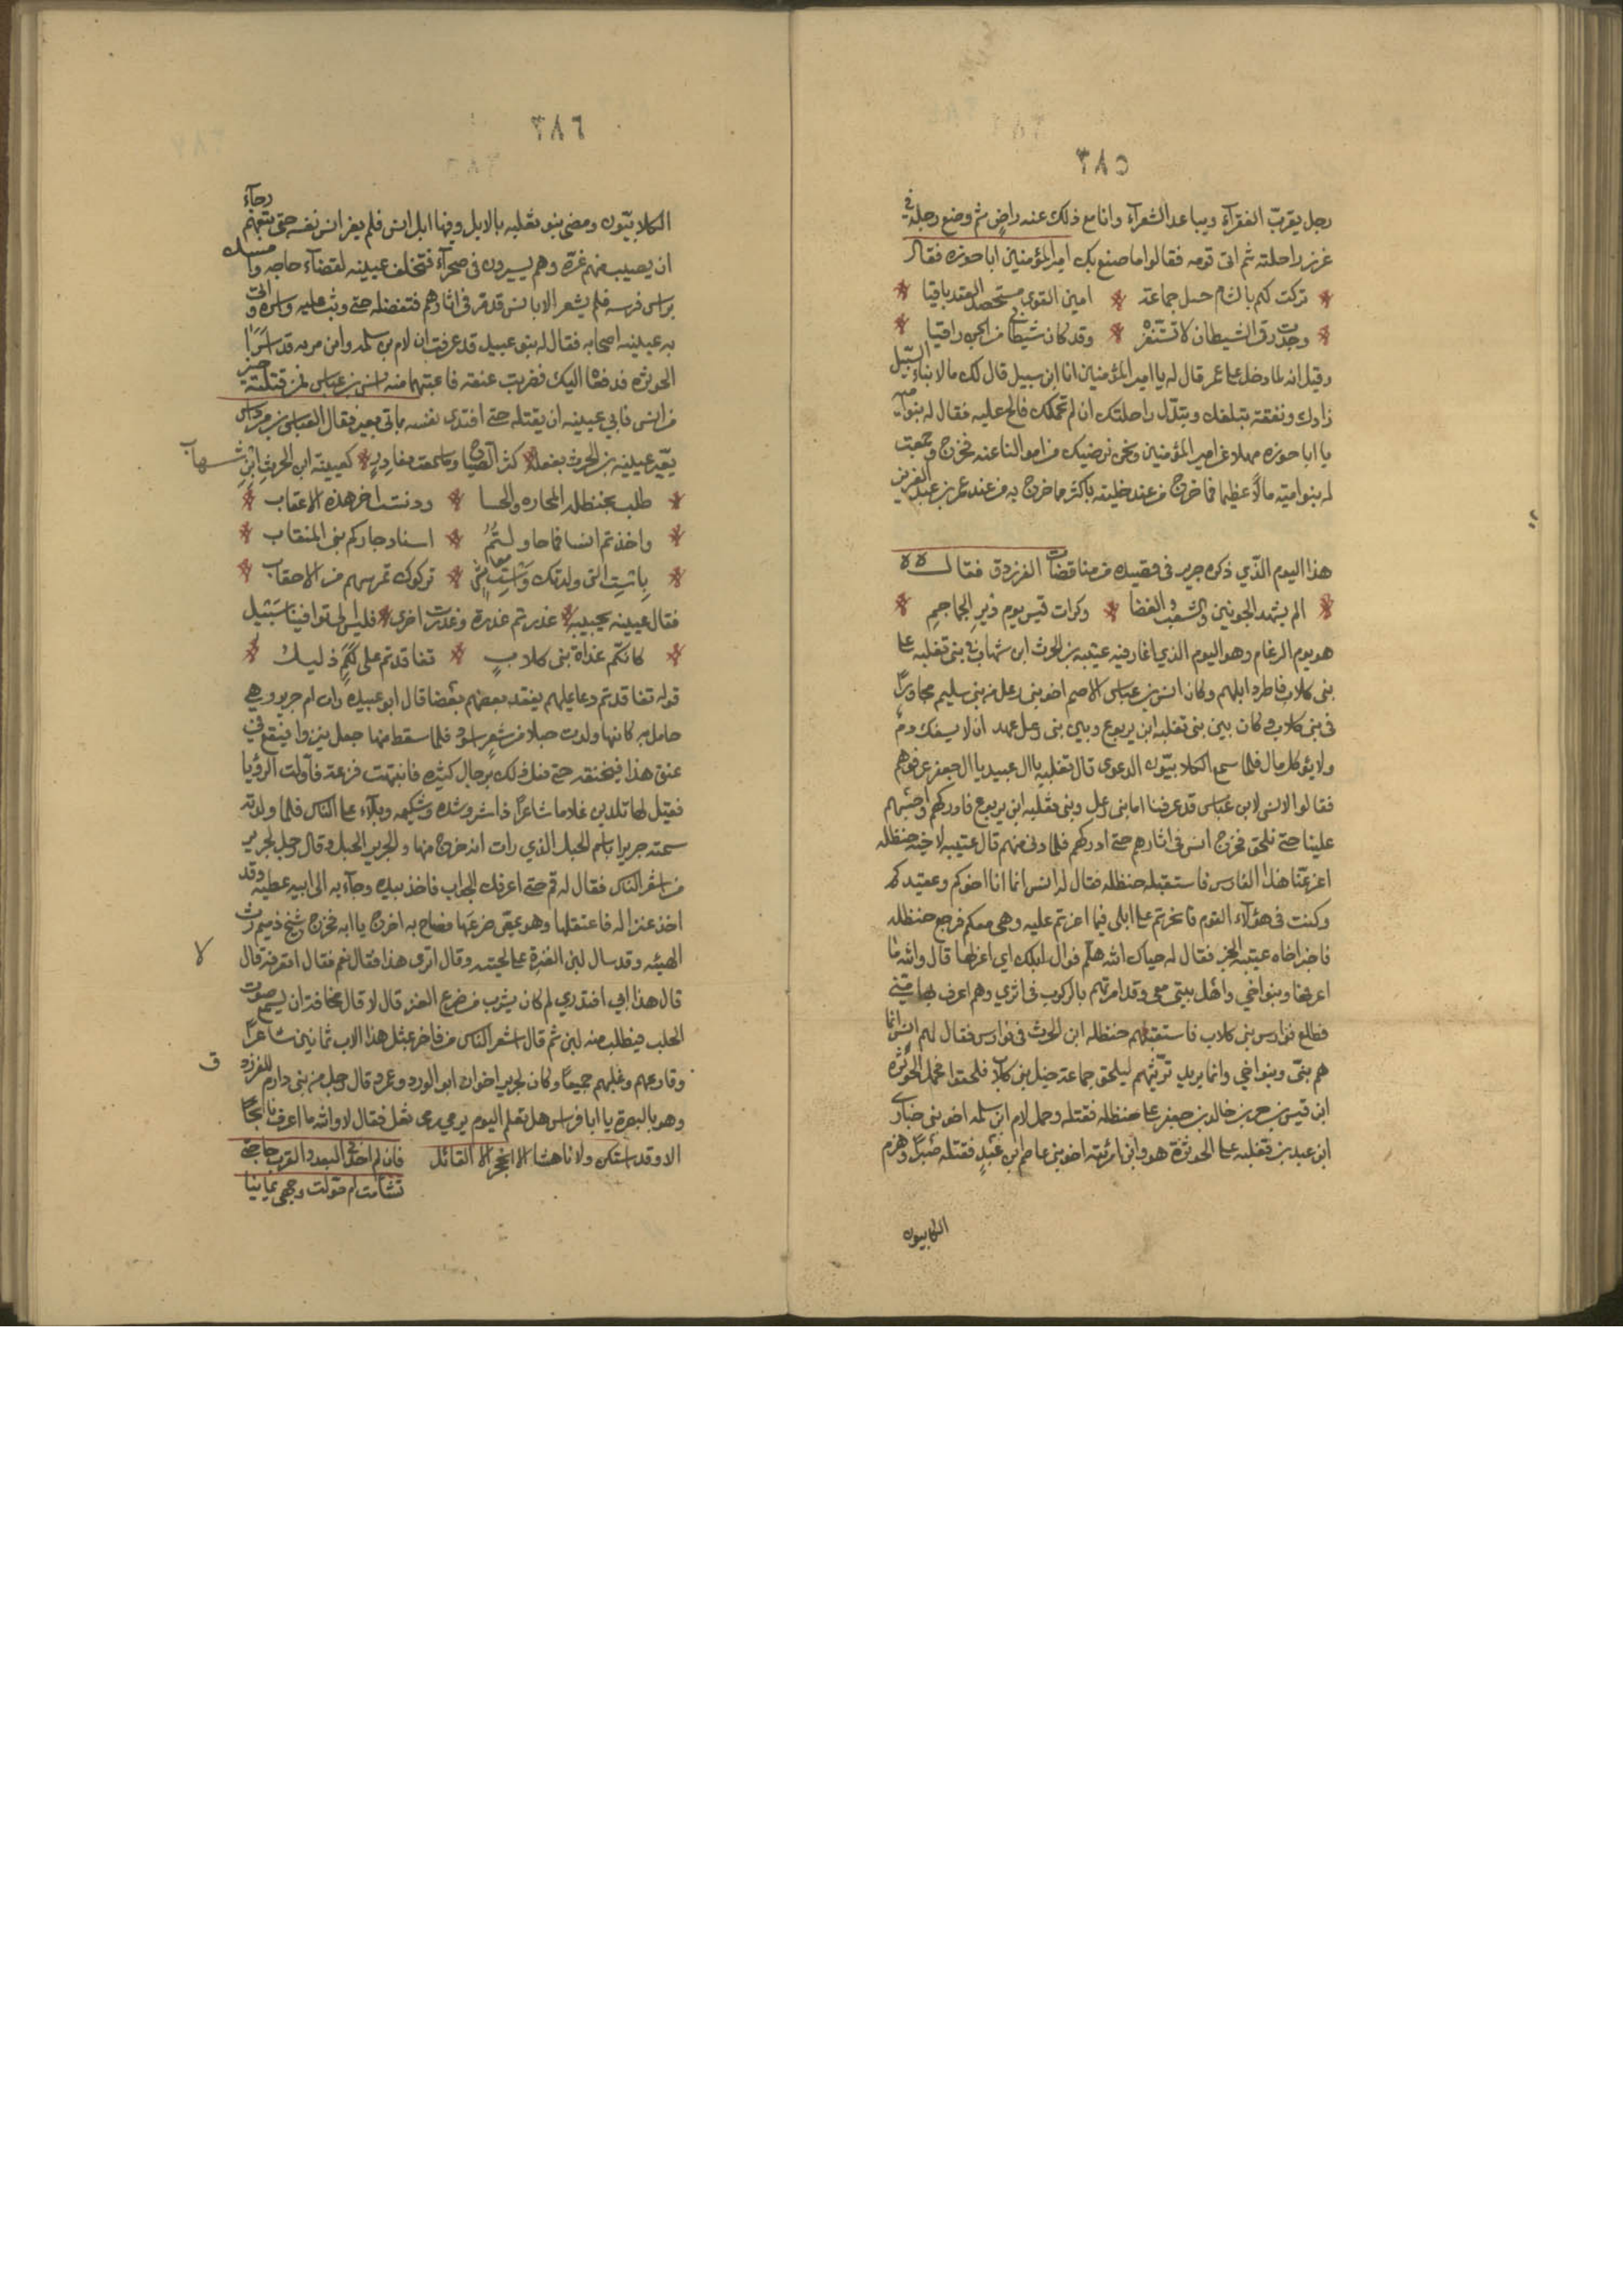 ٣٨٥
رجل يقرب الفقرآء ويباعد الشعرآء وانا مع ذلك عنه راضٍ ثم وضع رجله في
غرز راحلته ثم اتى قومه فقالوا ما صنع بك امير المؤمنين ابا حوزه فقال
تركت لكم بالشام حبل جماعة * امين القوى مستحصد العقد باقيا
وجدت رقى الشيطان لا تستفزه * وقد كان شيطاني من الجن راقيا
وقيل انه لما دخل على عمر قال له يا امير المؤمنين انا ابن سبيل قال لك ما لابناء السبيل
زادك ونفقة تبلغك وتبدل راحلتك ان لم تحملك فالح عليه فقال له بنو اميه
يا ابا حوزه مهلا عن امير المؤمنين ونحن نرضيك من اموالنا عنه فخرج وجمعت
له بنو اميّة مالاً عظيما فما خرج من عند خليفه باكثر مما خرج به من عند عمر بن عبد العزيز
هذا اليوم الذّي ذكره جرير في قصيده من مناقضات الفرزدق فقال
الم يشهد الجونين والشعب والغضا * وكرات قيس يوم دير الجماجمِ
هو يوم الرغام وهو اليوم الذي اغار فيه عتيبه بن الحرث ابن شهاب في بني ثعلبه على
بني كلاب فاطرد ابلهم وكان انس بن عباس الاصم اخو بني رعل من بني سليم مجاورًا
في بني كلاب وكان بين بني ثعلبه ابن يربوع وبين بني رعل عهد ان لا يسفك دم
ولا يؤكل مال فلما سمع الكلابيّون الدعوى قال ثعلبه يال عبيد يال جعفر عرفوهم
فقالوا لانس ابن عباس قد عرفنا ما بني رعل وبني ثعلبه ابن يربوع فادركهم احبسهم
علينا حتى نلحق فخرج انس في اثارهم حتى ادركهم فلما دنى منهم قال عتيبه لاخيه حنظله
اغن عنّا هذا الفارس فاستقبله حنظله فقال له انس انما انا اخوكم وعقيدكم
وكنت في هؤلآء القوم فاغرتم على ابلي فيما اغرتم عليه وهي معكم فرجع حنظله
فاخبر اخاه عتيبه الخبر فقال له حياك الله هلم فوال ابلك اي اعزلها قال والله ما
اعرفها وبنو اخي واهل بيتي معي وقد امرتهم بالركوب في اثري وهم اعرف بها مني
فطلع فوارس بني كلاب فاستقبلهم حنظله ابن الحرث في فوارس فقال لهم انس انما
هم بنيّ وبنو اخي وانما يريد تربثهم ليلحق جماعة خيل بني كلاب فلحقوا فحمل الحوثره
ابن قيس بن جزء بن خالد بن جعفر على حنظله فقتله وحمل لام ابن سلمه اخو بني ضبارى
ابن عبيد بن ثعلبه على الحوثرة هو وابن مزنة اخو بني عاصم ابن عبيد فقتله صبرًا وهزم
الكلابيون
٣٨٦
الكلابيّون ومضى بنو ثعلبه بالابل وفيها ابل انس فلم يقر انس نفسه حتى تبعهم رجآء
ان يصيب منهم غرّة وهم يسيرون في صحرآء فتخلف عتيبه لقضآء حاجه وامسك
براس فرسه فلم يشعر الا بانس قد مر في اثارهم فتغفله حتى وثب عليه واسره واتى
به عتيبه اصحابه فقال له بنو عبيد قد عرفت ان لام بن سلمه وابن مزنه قد اسرا
الحوثره فدفعاه اليك فضربت عنقه فاعتبهما منه بانس بن عباس فمن قتلته خير
من انس فابى عتيبه ان يقتله حتى افتدى نفسه بماتي بعير فقال العباس بن مرداس
يعيّر عتيبه بن الحرث بفعله * كثر الضجاج وما سمعت بغادرٍ * كعتيبة ابن الحرث ابن شهاب
طلب بحنظله المخازه والخسا * ودنست اخر هذه الاحقاب
واخذتم انسا فما حاولتُمُ * اسار جاركم بني الميقاب
باشت التي ولدتك واست معاشرٍ * تركوك تمرسهم من الاحقاب
فقال عتيبه يجيبه * غدرتم غدرة وغدرت اخرى * فليس الى توافينا سَبِيل
كانّكم غداة بني كلابٍ * تفاقدتم على لَكُم ذليل
قوله تفاقدتم دعا عليهم يفقد بعضهم بعضا قال ابو عبيده رات ام جرير وهي
حامل به كانها ولدت حبلا من شعر اسود فلما سقط منها جعل ينزوا فيقع في
عنق هذا فيخنقه حتى فعل ذلك برجال كثيره فانتبهت فزعة فأولت الرؤيا
فقيل لها تلدين غلاما شاعرًا ذا شر وشده وشكيمه وبلآء على الناس فلما ولدته
سمته جريرا باسم الحبل الذي رات انه خرج منها والجرير الحبل وقال رجل لجرير
من اشعر الناس فقال له قم حتى اعرفك الجواب فاخذ بيده وجآء به الى ابيه عطيه وقد
اخذ عنزا له فاعتقلها وهو يمص ضرعها فصاح به اخرج يا ابه فخرج شيخ ذميم رث
الهيئه وقد سال لبن العنزة على لحيته وقال اترى هذا فقال نعم فقال اتعرفه قال لا
قال هذا ابي افتدري لم كان يشرب من ضرع العنز قال لا قال مخافة ان يسمع صوت
الحلب فيطلب منه لبن ثم قال اشعر الناس من فاخر بمثل هذا الاب ثمانين شاعرًا
وقارعهم وغلبهم جميعًا وكان لجرير اخوان ابو الورد وعمرو قال رجل من بني دارم للفرزدق
وهو بالبصرة يا ابا فراس هل تعلم اليوم يرمي مرمى معك فقال لا والله ما اعرف نابحًا
الا وقد استكن ولا ناهشا الا انجحر الا القائل
فان لم اجد في البعد والقرب حاجتي
تشآمت او حولت وجهي يمانيا